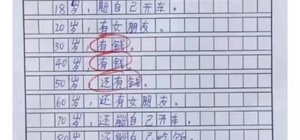 18岁，能自己开车。
20岁，有女朋友。
30岁，有钱。
40岁，有钱。
50岁，还有钱。
60岁，还有女朋友。
70岁，还能自己开车。
80岁，还能自己吃饭。